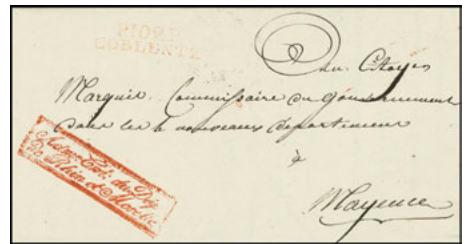 P109P
COBLENTZ
Au Citoyen
Marquis. Commissaire du Gouvernement
dans les 4 nouveaux departemens
à
Mayence
Rhin et Moselle